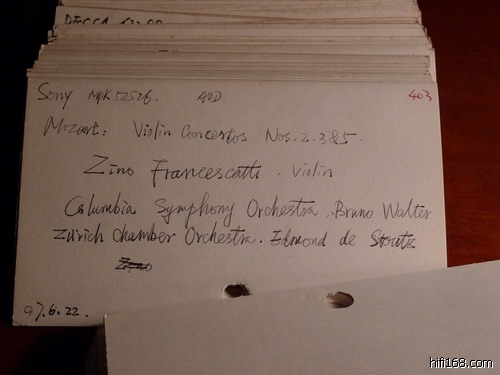 DECCA
Sony MPK 52526. ADD 403
Mozart: Violin Concertos Nos. 2. 3 & 5.
Zino Francescatti. Violin
Columbia Symphony Orchestra. Bruno Walter
Zürich Chamber Orchestra. Edmond de Stoutz
Zino
97.6.22.
hifi168.com